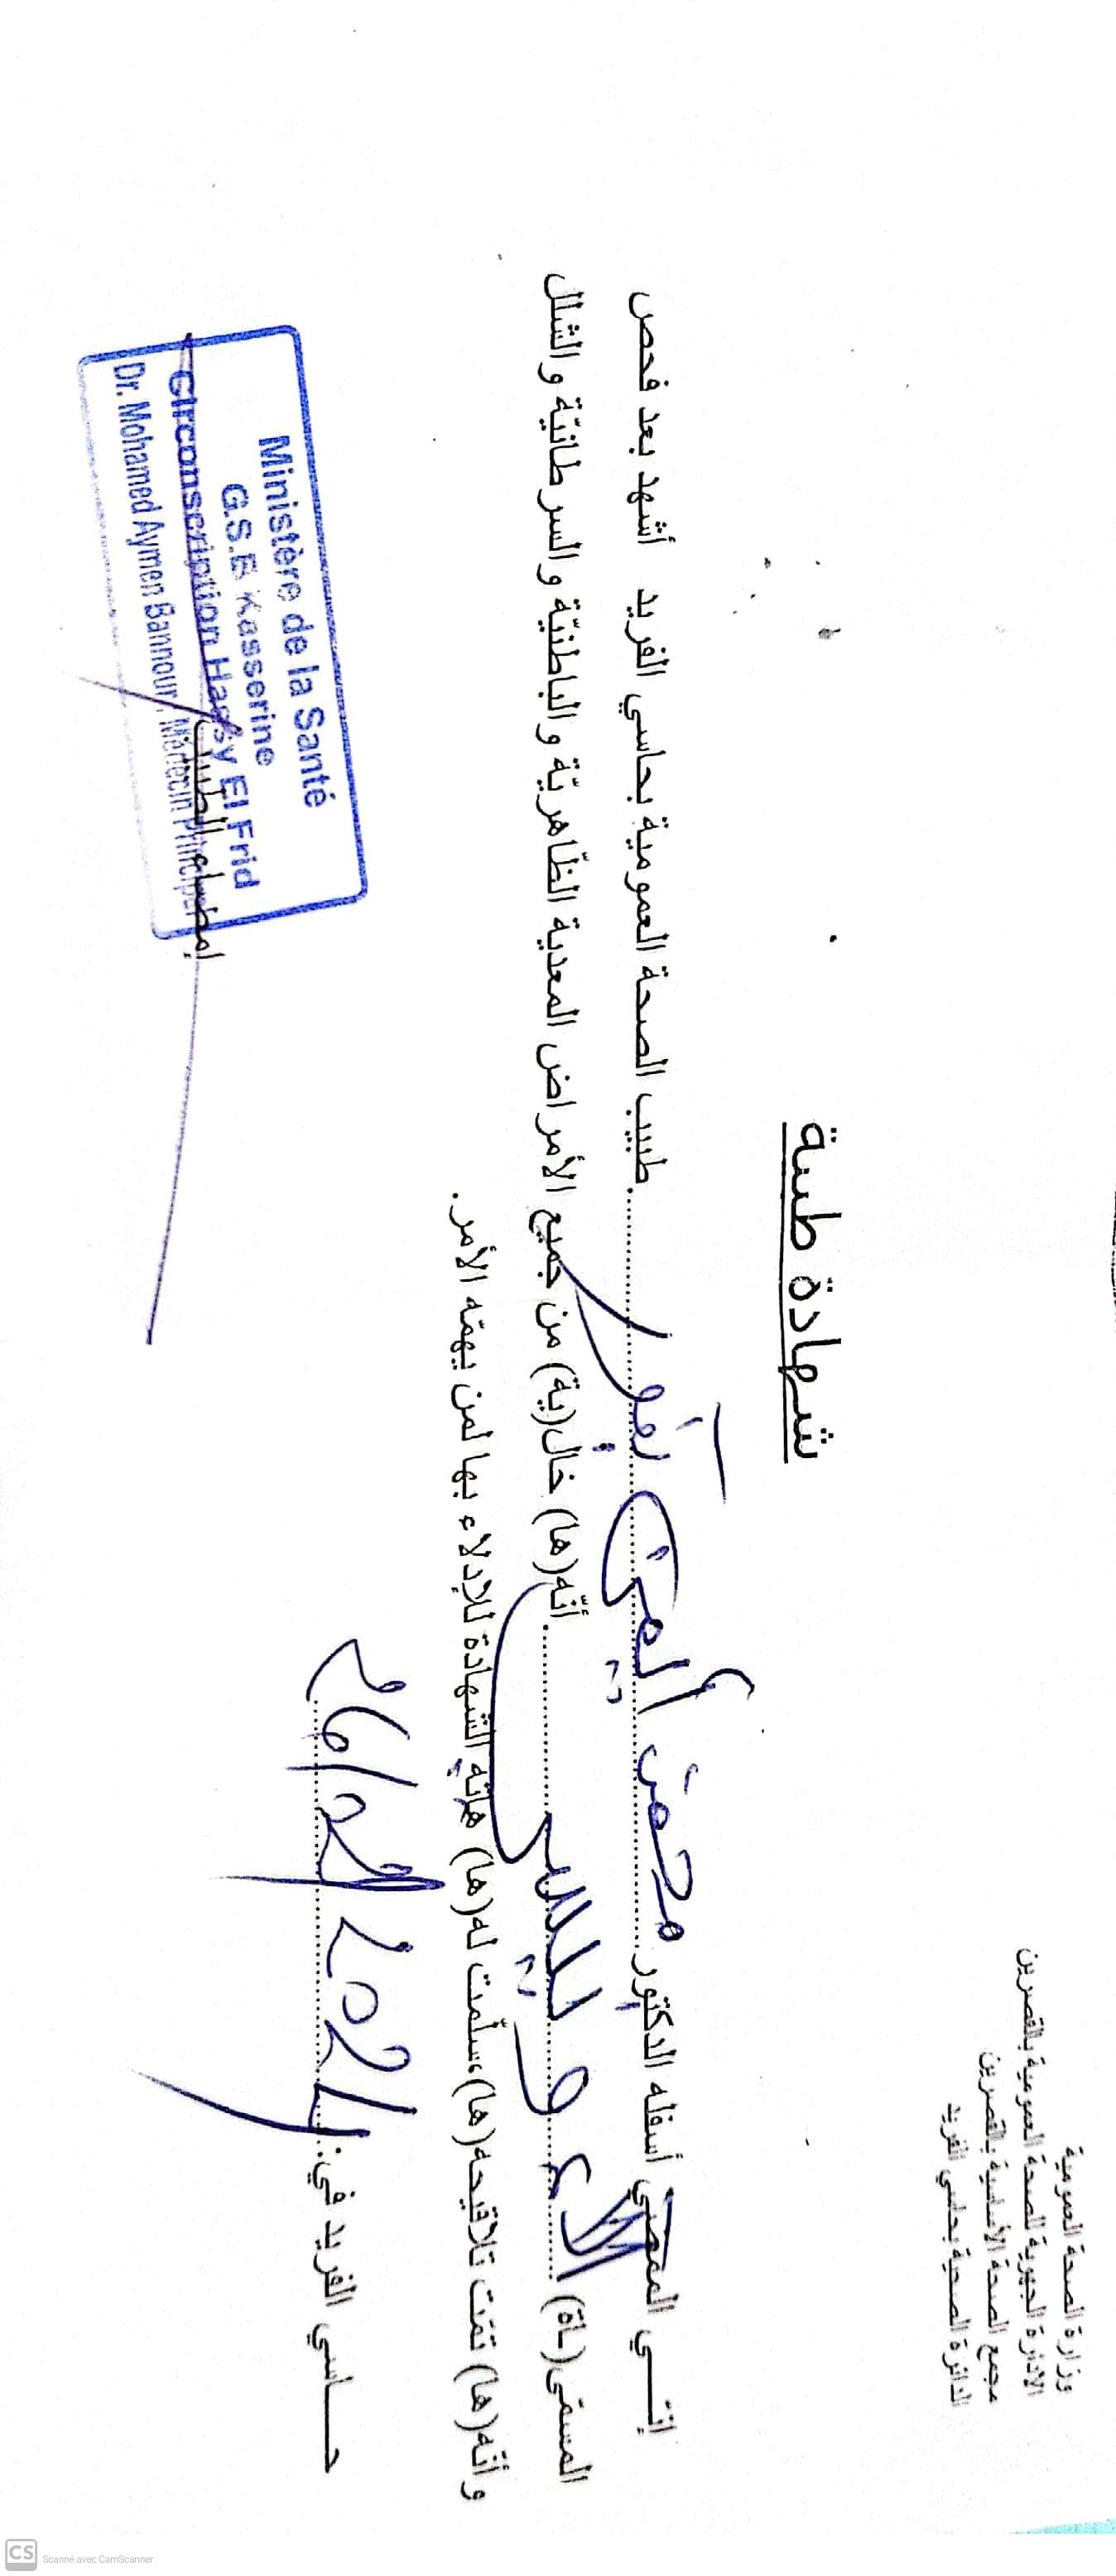 وزارة الصحة العمومية
الإدارة الجهوية للصحة العمومية بالقصرين
مجمع الصحة الأساسية بالقصرين
الدائرة الصحية بحاسي الفريد
شهادة طبية
إنّـــي الممضي أسفله الدكتور محمد أيمن بنور طبيب الصحة العمومية بحاسي الفريد أشهد بعد فحص
المسمّى(ـاة) أنّه(ها) خال(ية) من جميع الأمراض المعدية الظّاهريّة والباطنيّة والسرطانيّة والشلل
وأنّه(ها) تمّت تلاقيحه(ها)،سلّمت له(ها) هاته الشهادة للإدلاء بها لمن يهمّه الأمر.
حــــاسي الفريد في: 26/02/2024
إمضاء الطبيب
Ministère de la Santé
G.S.B Kasserine
Circonscription Hassy El Frid
Dr. Mohamed Aymen Bannour, Médecin Principal
CS Scanné avec CamScanner